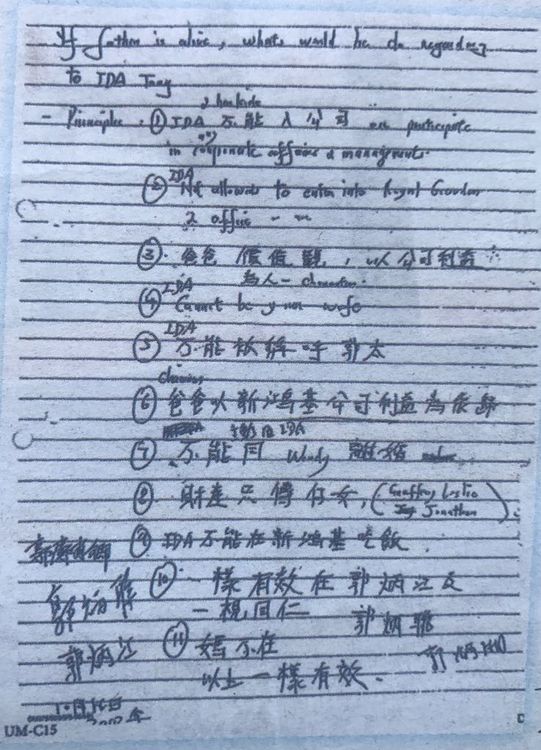 If father is alive, what would he do regarding
to IDA Tong
- Principles : ① IDA 不能入公司 or participate
in corporate affairs & management.
② IDA Not allowed to enter into Royal Garden
& office
③ 爸爸價值觀，以公司利益
為人 - character.
④ IDA Cannot be your wife
⑤ IDA 不能被稱呼郭太
⑥ 爸爸以新鴻基公司利益為依歸
⑦ 不能同 Wendy 離婚
⑧ 財產只傳仔女, (Geoffrey Leslie
Jonathan)
⑨ IDA 不能在新鴻基吃飯.
⑩ 一樣有效在郭炳江及
一視同仁 郭炳聯
郭炳江
⑪ 媽不在
以上一樣有效.
UM-C15